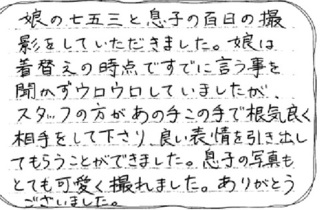 娘の七五三と息子の百日の撮
影をしていただきました。娘は
着替えの時点ですでに言う事を
聞かずウロウロしていましたが、
スタッフの方があの手この手で根気良く
相手をして下さり、良い表情を引き出し
てもらうことができました。息子の写真も
とても可愛く撮れました。ありがとう
ございました。